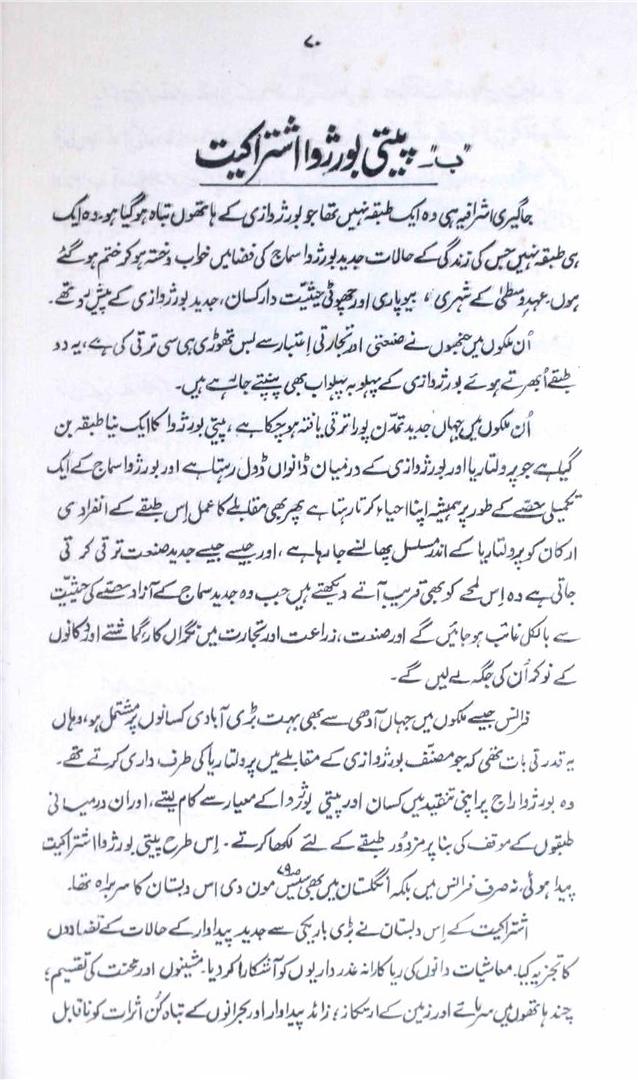 ۷۰
"ب"۔ پیتی بورژوا اشتراکیت
جاگیری اشرافیہ ہی وہ ایک طبقہ نہیں تھا جو بورژوازی کے ہاتھوں تباہ ہو گیا ہو، وہ ایک
ہی طبقہ نہیں جس کی زندگی کے حالات جدید بورژوا سماج کی فضا میں خراب و خستہ ہو کر ختم ہو گئے
ہوں۔ عہد وسطیٰ کے شہری، بیوپاری اور چھوٹی حیثیت دار کسان، جدید بورژوازی کے پیش رو تھے۔
اُن ملکوں میں جنھوں نے صنعتی اور تجارتی اعتبار سے بس تھوڑی ہی سی ترقی کی ہے، یہ دو
طبقے اُبھرتے ہوئے بورژوازی کے پہلو بہ پہلو اب بھی پنپتے جاتے ہیں۔
اُن ملکوں میں جہاں جدید تمدّن پورا ترقی یافتہ ہو چکا ہے، پیتی بورژوا کا ایک نیا طبقہ بن
گیا ہے جو پرولتاریا اور بورژوازی کے درمیان ڈانواں ڈول رہتا ہے اور بورژوا سماج کے ایک
تکمیلی حصّے کے طور پر ہمیشہ اپنا احیاء کرتا رہتا ہے پھر بھی مقابلے کا عمل اِس طبقے کے انفرادی
ارکان کو پرولتاریا کے اندر مسلسل پھانسے جا رہا ہے، اور جیسے جیسے جدید صنعت ترقی کرتی
جاتی ہے وہ اِس لمحے کو بھی قریب آتے دیکھتے ہیں جب وہ جدید سماج کے آزاد حصّے کی حیثیّت
سے بالکل غائب ہو جائیں گے اور صنعت، زراعت اور تجارت میں نگراں کار، گماشتے اور دُکانوں
کے نوکر اُن کی جگہ لے لیں گے۔
فرانس جیسے ملکوں میں جہاں آدھی سے بھی بہت بڑی آبادی کسانوں پر مشتمل ہو، وہاں
یہ قدرتی بات تھی کہ جو مصنّف بورژوازی کے مقابلے میں پرولتاریا کی طرف داری کرتے تھے۔
وہ بورژوا راج پر اپنی تنقید میں کسان اور پیتی بورژوا کے معیار سے کام لیتے، اور ان درمیانی
طبقوں کے موقف کی بنا پر مزدور طبقے کے لئے لکھا کرتے۔ اِس طرح پیتی بورژوا اشتراکیت
پیدا ہوئی، نہ صرف فرانس میں بلکہ انگلستان میں بھی سیس مون دی اس دبستان کا سربراہ تھا۔
اشتراکیت کے اِس دبستان نے بڑی باریکی سے جدید پیداوار کے حالات کے تضادوں
کا تجزیہ کیا۔ معاشیات دانوں کی ریاکارانہ عذرداریوں کو آشکارا کر دیا۔ مشینوں اور محنت کی تقسیم؛
چند ہاتھوں میں سرمائے اور زمین کے ارتکاز؛ زائد پیداوار اور بحرانوں کے تباہ کُن اثرات کو ناقابل